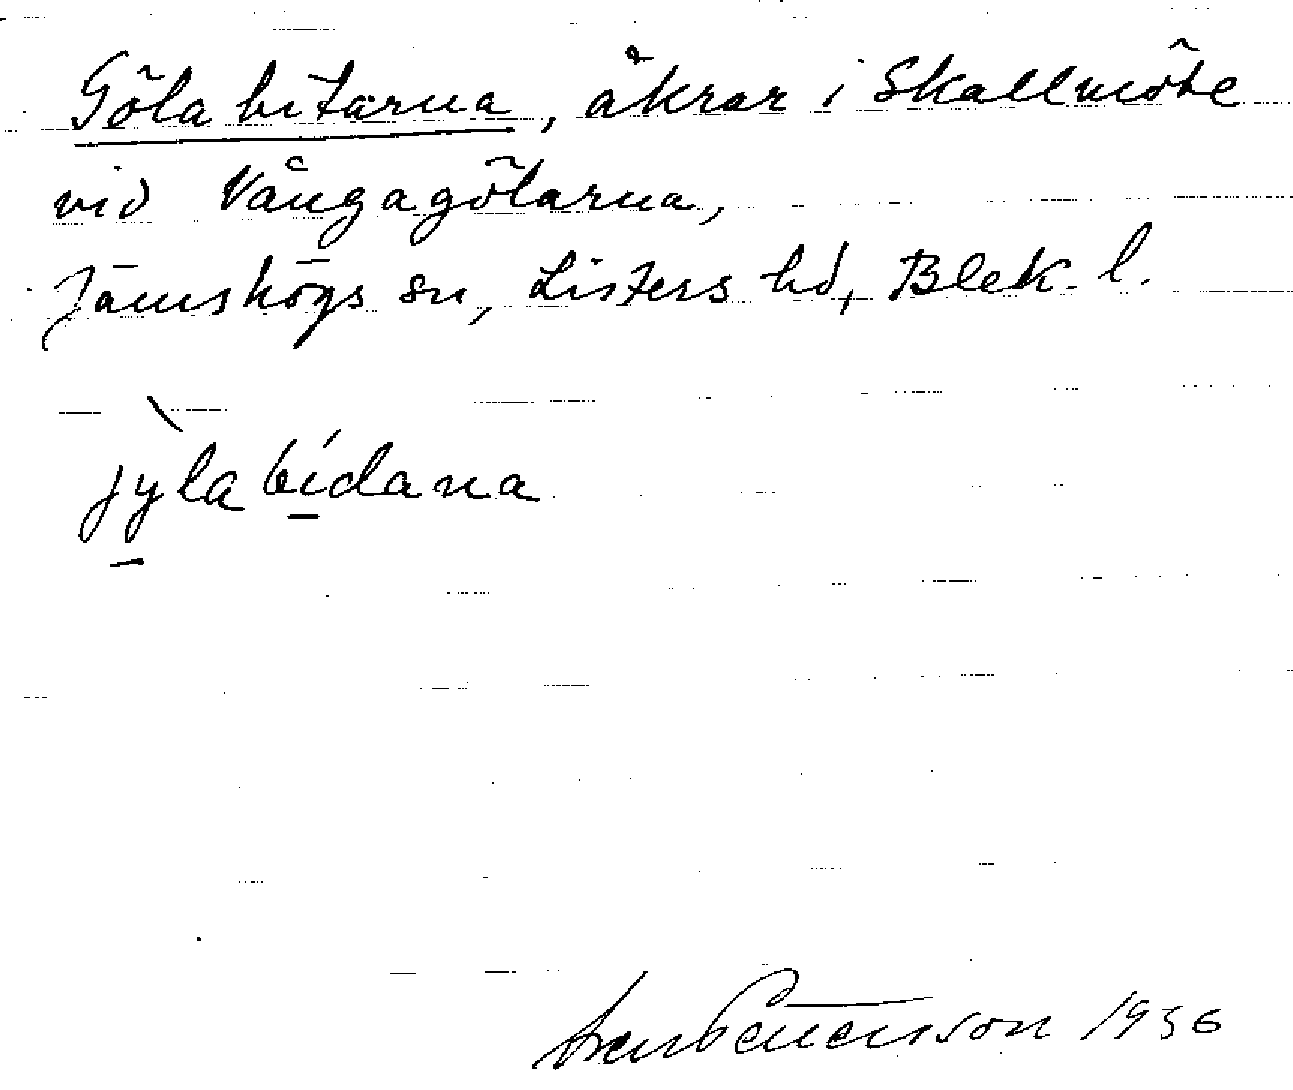 Göla bitarna, åkrar i Skallmöte
vid Vångagölarna,
Jämshögs sn, Listers hd, Blek. l.
jỳla bídana
1936